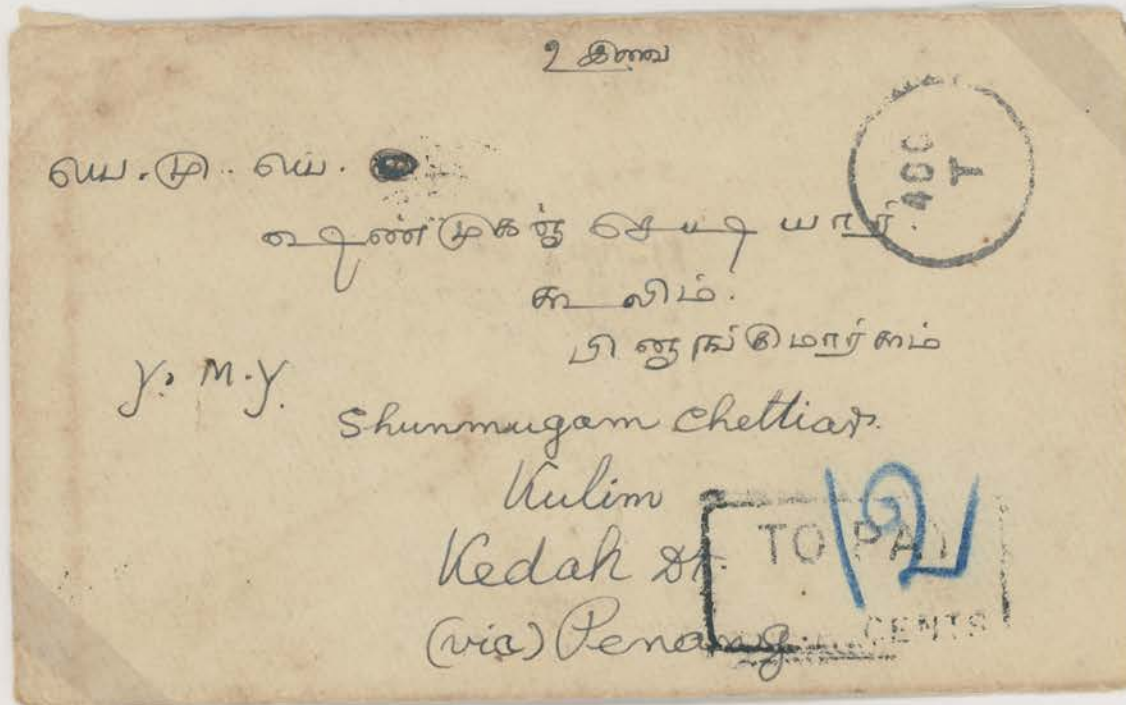 உ சிவமயம்
400
T
யெ. மு. யெ.
ஷண்முகஞ் செட்டியார்.
கூலிம்.
பினாங்குமார்க்கம்
Y. M. Y.
Shunmugam Chettiar.
Kulim
Kedah St.
(via) Penang
TO PAY
12
CENTS